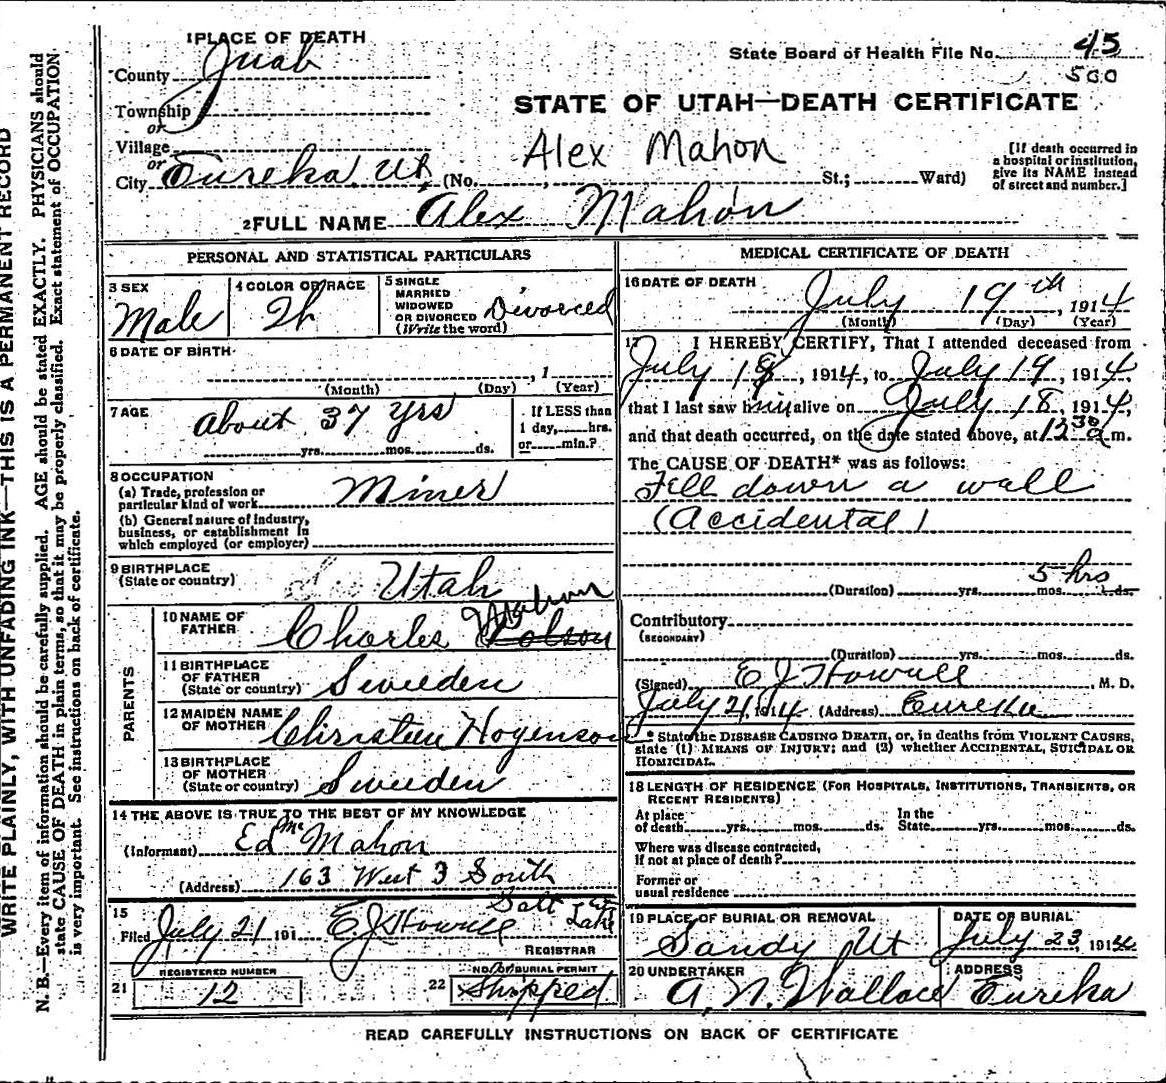 1 PLACE OF DEATH
County Juab
Township
or
Village
or
City Eureka, Ut, (No. , St.; Ward)
State Board of Health File No. 45
500
STATE OF UTAH—DEATH CERTIFICATE
Alex Mahon
[If death occurred in
a hospital or institution,
give its NAME instead
of street and number.]
2 FULL NAME Alex Mahon
PERSONAL AND STATISTICAL PARTICULARS
3 SEX
Male
4 COLOR OR RACE
Wh
5 SINGLE
MARRIED
WIDOWED
OR DIVORCED
(Write the word)
Divorced
6 DATE OF BIRTH
, 1
(Month) (Day) (Year)
7 AGE
About 37 yrs
yrs. mos. ds.
If LESS than
1 day, hrs.
or min.?
8 OCCUPATION
(a) Trade, profession or
particular kind of work Miner
(b) General nature of industry,
business, or establishment in
which employed (or employer)
9 BIRTHPLACE
(State or country) Utah
PARENTS
10 NAME OF
FATHER Charles Mahon
11 BIRTHPLACE
OF FATHER
(State or country) Sweeden
12 MAIDEN NAME
OF MOTHER Christeen Hogenson
13 BIRTHPLACE
OF MOTHER
(State or country) Sweeden
14 THE ABOVE IS TRUE TO THE BEST OF MY KNOWLEDGE
(Informant) Ed Mc Mahon
(Address) 163 West 3 South
Salt Lake
15
Filed July 21 191 E J Howell
REGISTRAR
REGISTERED NUMBER
21 12
NO. OF BURIAL PERMIT
22 Shipped
MEDICAL CERTIFICATE OF DEATH
16 DATE OF DEATH
July 19th, 1914
(Month) (Day) (Year)
17 I HEREBY CERTIFY, That I attended deceased from
July 18, 1914, to July 19, 1914,
that I last saw him alive on July 18, 1914,
and that death occurred, on the date stated above, at 12 30 a m.
The CAUSE OF DEATH* was as follows:
Fell down a wall
(Accidental)
5 hrs
(Duration) yrs. mos. ds.
Contributory
(SECONDARY)
(Duration) yrs. mos. ds.
(Signed) E J Howell, M. D.
July 21, 1914 (Address) Eureka
* State the DISEASE CAUSING DEATH, or, in deaths from VIOLENT CAUSES,
state (1) MEANS OF INJURY; and (2) whether ACCIDENTAL, SUICIDAL OR
HOMICIDAL.
18 LENGTH OF RESIDENCE (FOR HOSPITALS, INSTITUTIONS, TRANSIENTS, OR
RECENT RESIDENTS)
At place
of death yrs. mos. ds.
In the
State yrs. mos. ds.
Where was disease contracted,
if not at place of death?
Former or
usual residence
19 PLACE OF BURIAL OR REMOVAL
Sandy Ut
DATE OF BURIAL
July 23, 1914
20 UNDERTAKER
A. N. Wallace
ADDRESS
Eureka
READ CAREFULLY INSTRUCTIONS ON BACK OF CERTIFICATE
WRITE PLAINLY, WITH UNFADING INK—THIS IS A PERMANENT RECORD
N. B.—Every item of information should be carefully supplied. AGE should be stated EXACTLY. PHYSICIANS should
state CAUSE OF DEATH in plain terms, so that it may be properly classified. Exact statement of OCCUPATION
is very important. See instructions on back of certificate.